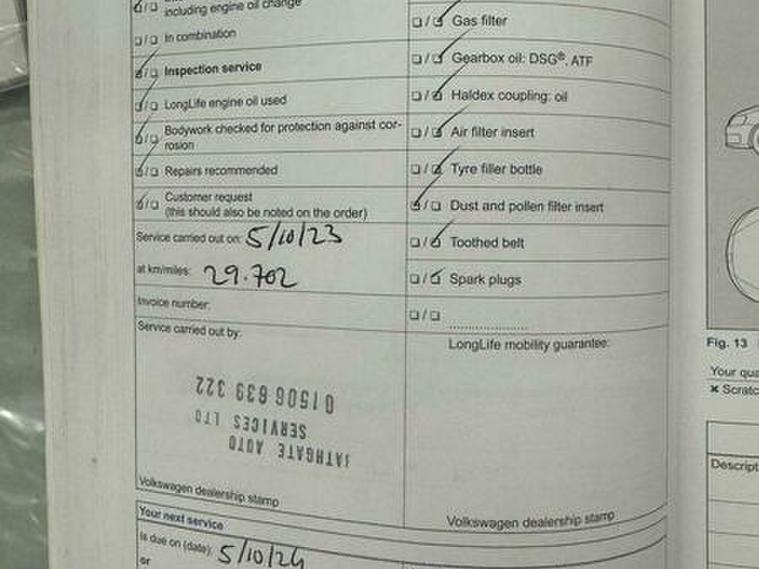 including engine oil change
In combination
Inspection service
LongLife engine oil used
Bodywork checked for protection against cor-
rosion
Repairs recommended
Customer request
(this should also be noted on the order)
Service carried out on: 5/10/23
at km/miles: 29.702
Invoice number:
Service carried out by:
BATHGATE AUTO
SERVICES LTD
01506 639 322
Volkswagen dealership stamp
Your next service
is due on (date): 5/10/24
or
Gas filter
Gearbox oil: DSG®, ATF
Haldex coupling: oil
Air filter insert
Tyre filler bottle
Dust and pollen filter insert
Toothed belt
Spark plugs
LongLife mobility guarantee:
Volkswagen dealership stamp
Fig. 13
Your qua
✖ Scratc
Descript